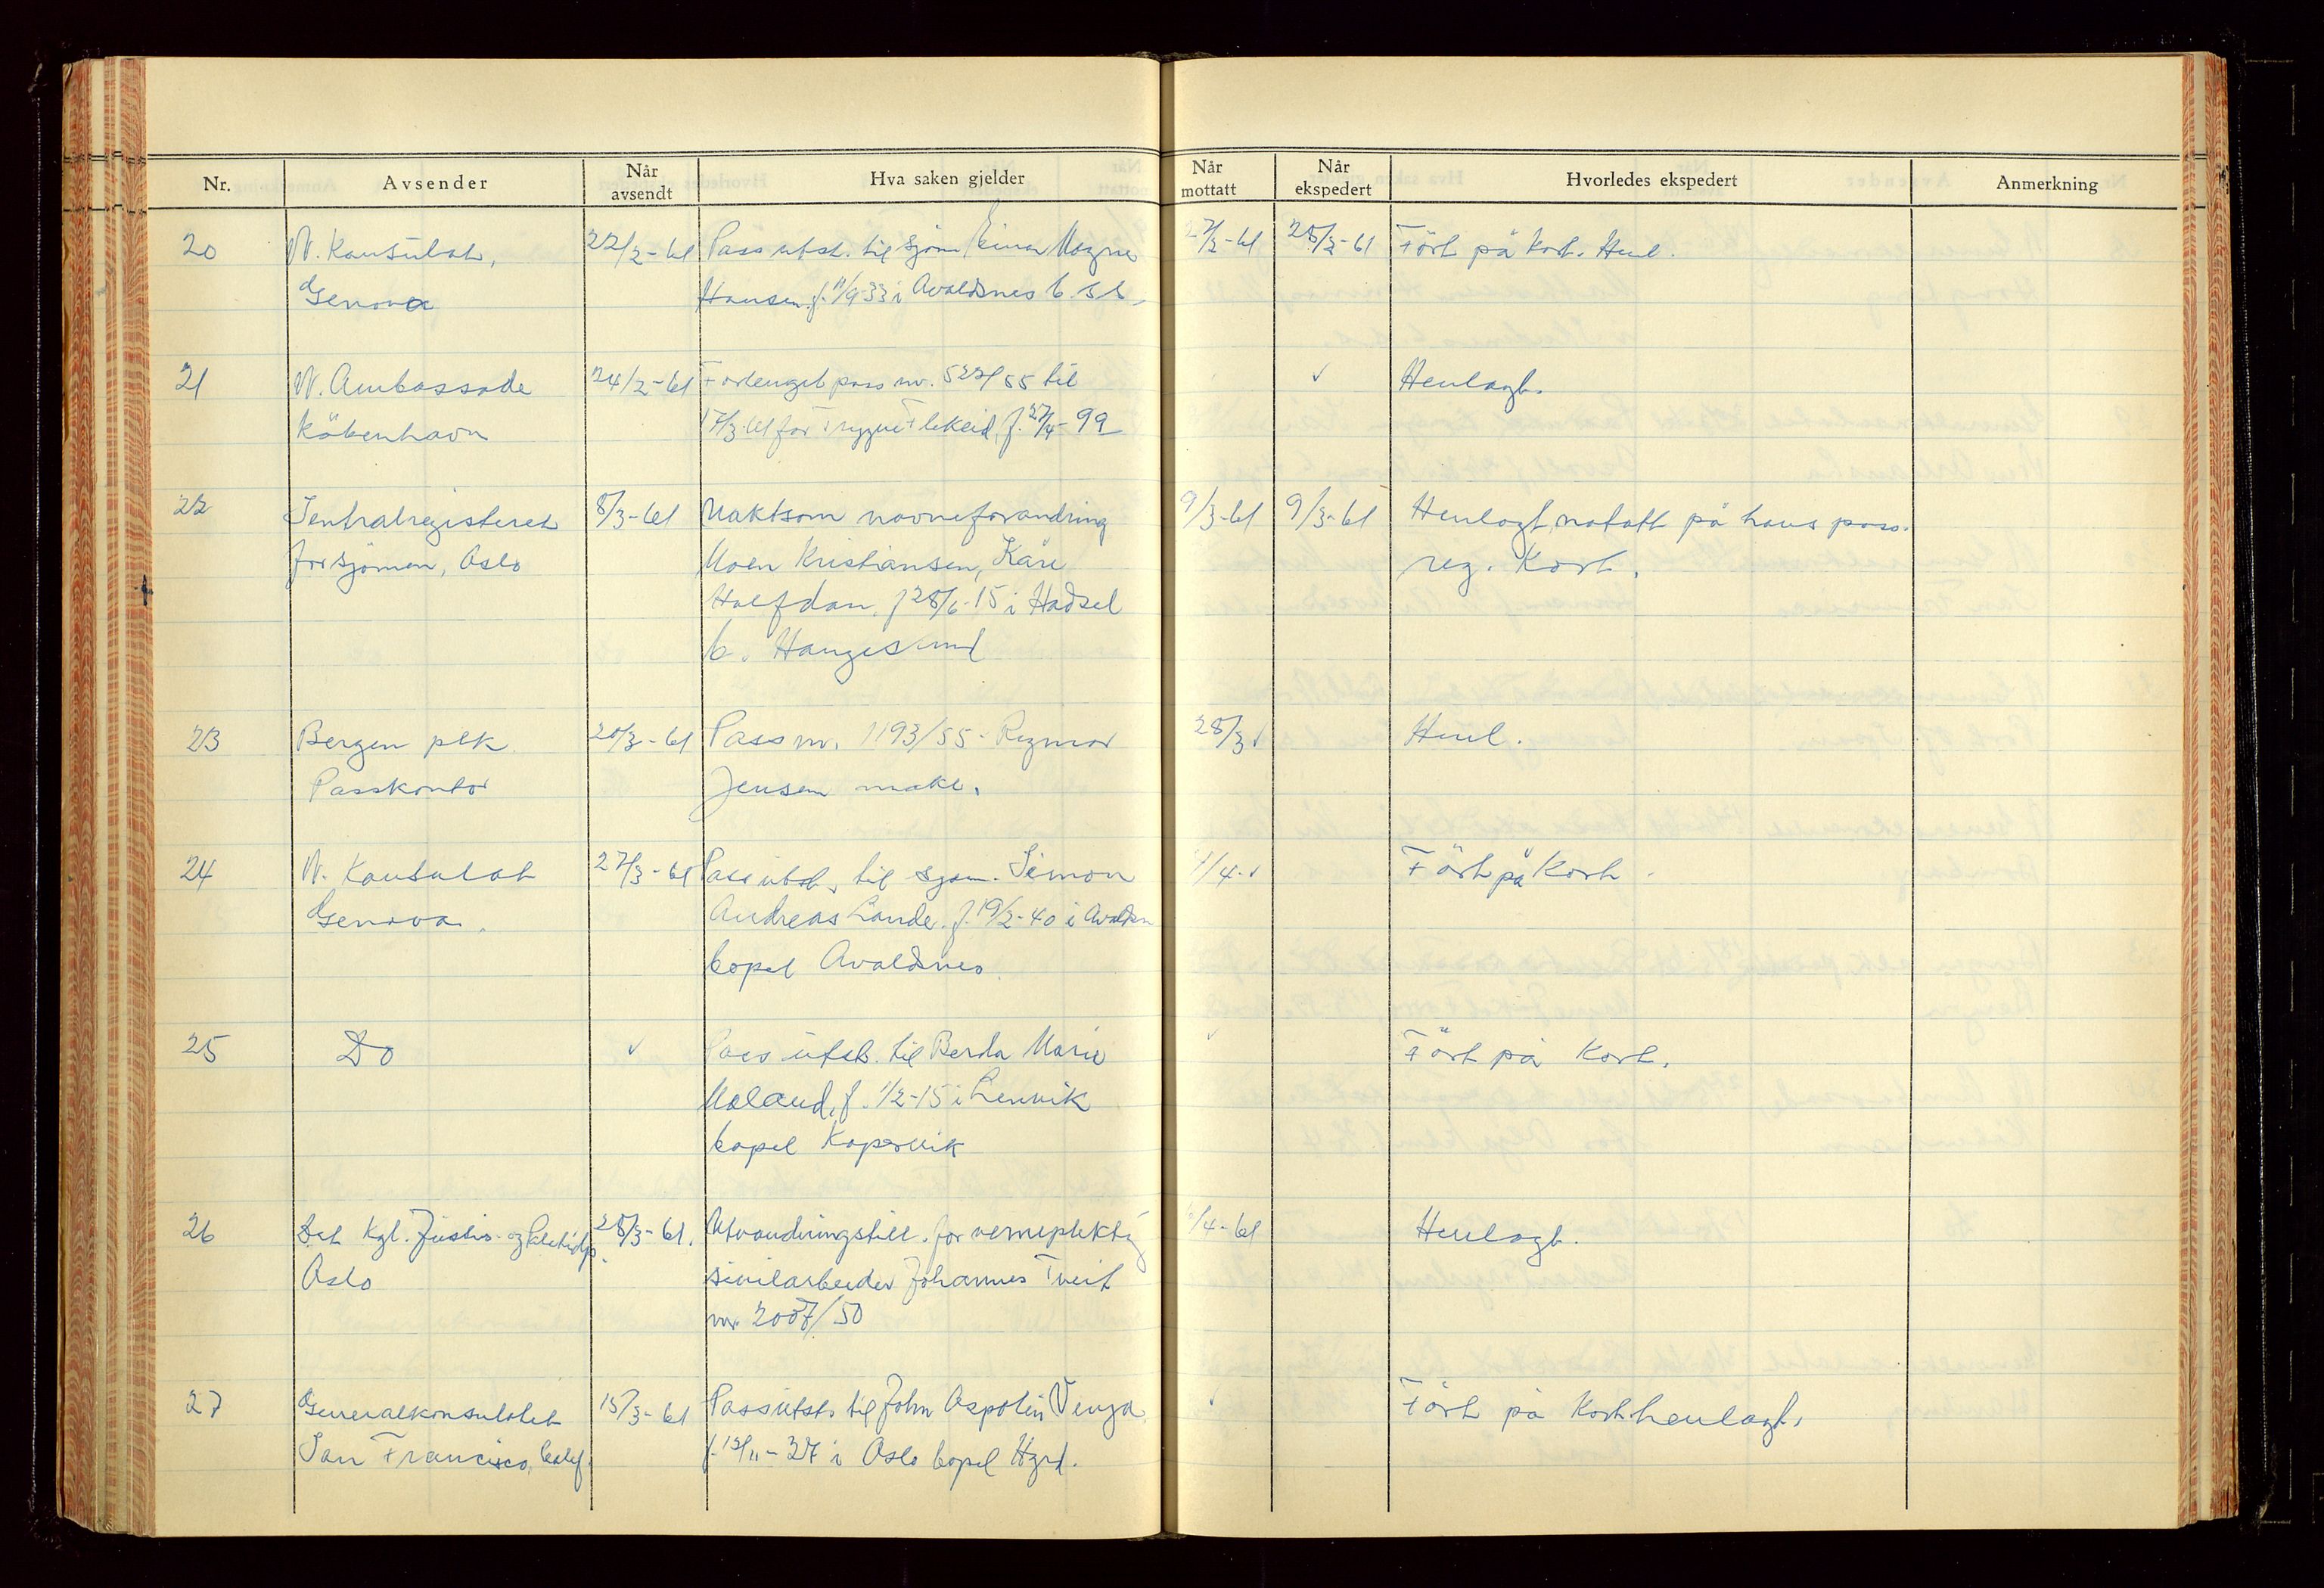 Nr. Avsender Når avsendt Hva saken gjelder Når mottatt Når ekspedert Hvorledes ekspedert Anmerkning
20 N. Konsulat, 22/2-61 Pass utst. til sjøm Einar Magne 27/2-61 28/2-61 Ført på kort. Henl.
Genova Hansen f. 11/9-33 i Avaldsnes b.
21 N. Ambassade 24/2-61 Forlenget pass nr. 522/55 til ✓ Henlagt.
København 17/3-61 for Trygve f. 27/4-99
22 Sentralregisteret 8/3-61 navneforandring 9/3-61 9/3-61 Henlagt, notatt på hans pass.
for sjømen, Oslo Moen Kristiansen, Kåre reg. Kort.
Halfdan, f 28/6-15 i Hadsel
b. Haugesund
23 Bergen plk 20/3-61 Pass nr. 1193/55 - Regmor 28/3 ✓ Henl.
Passkontor Jensen makl.
24 N. Konsulat 27/3-61 Pass utst. til sjøm. Simon 1/4-✓ Ført på Kort.
Genova. Andreas Lande. f. 19/2-40 i Avaldsn
bopel Avaldsnes.
25 Do ✓ Pass utst. til Berda Marie ✓ Ført på Kort.
Moland, f. 1/2-15 i Lenvik
bopel Kopervik
26 Det Kgl. Justis- og Politidp. 28/3-61. Utvandringstill. for vernepliktig 6/4-61 Henlagt.
Oslo sivilarbeider Johannes Tveit
nr. 2007/50
27 Generalkonsulatet 15/3-61 Pass utst. til John Aspolin Venga ✓ Ført på Kort henlagt.
San Francisco, Calif. f. 12/11-37 i Oslo bopel Hgsd.